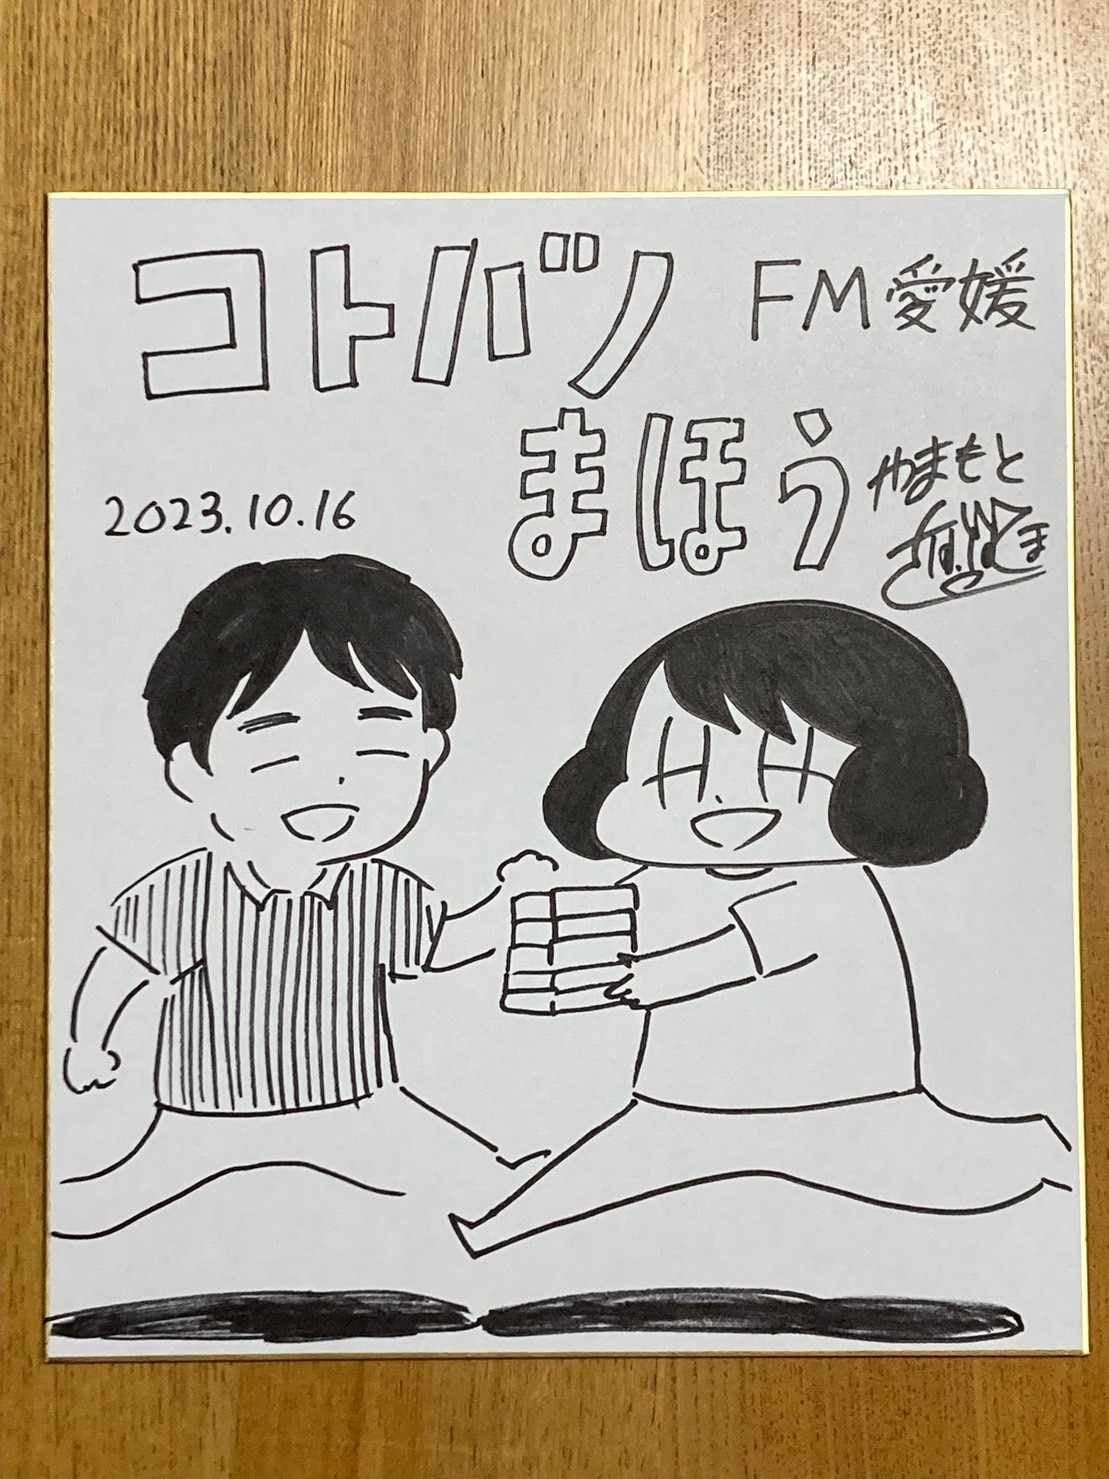 コトバノ
FM愛媛
まほう
やまもと
2023.10.16